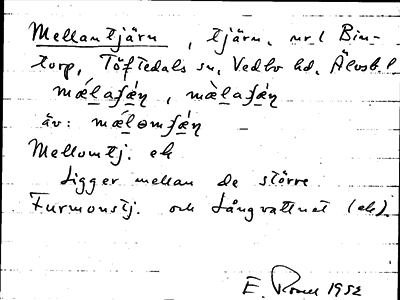 Mellantjärn, tjärn, nr 1 Bin-
torp, Töftedals sn, Vedbo hd, Älvsb. l
mǽlaʃæ̀n, mæ̀laʃǽn
äv: mǽlɵmʃǽn
Mellomtj. ek
Ligger mellan de större
Furmonstj. och Långvattnet (ek).
E. 1952